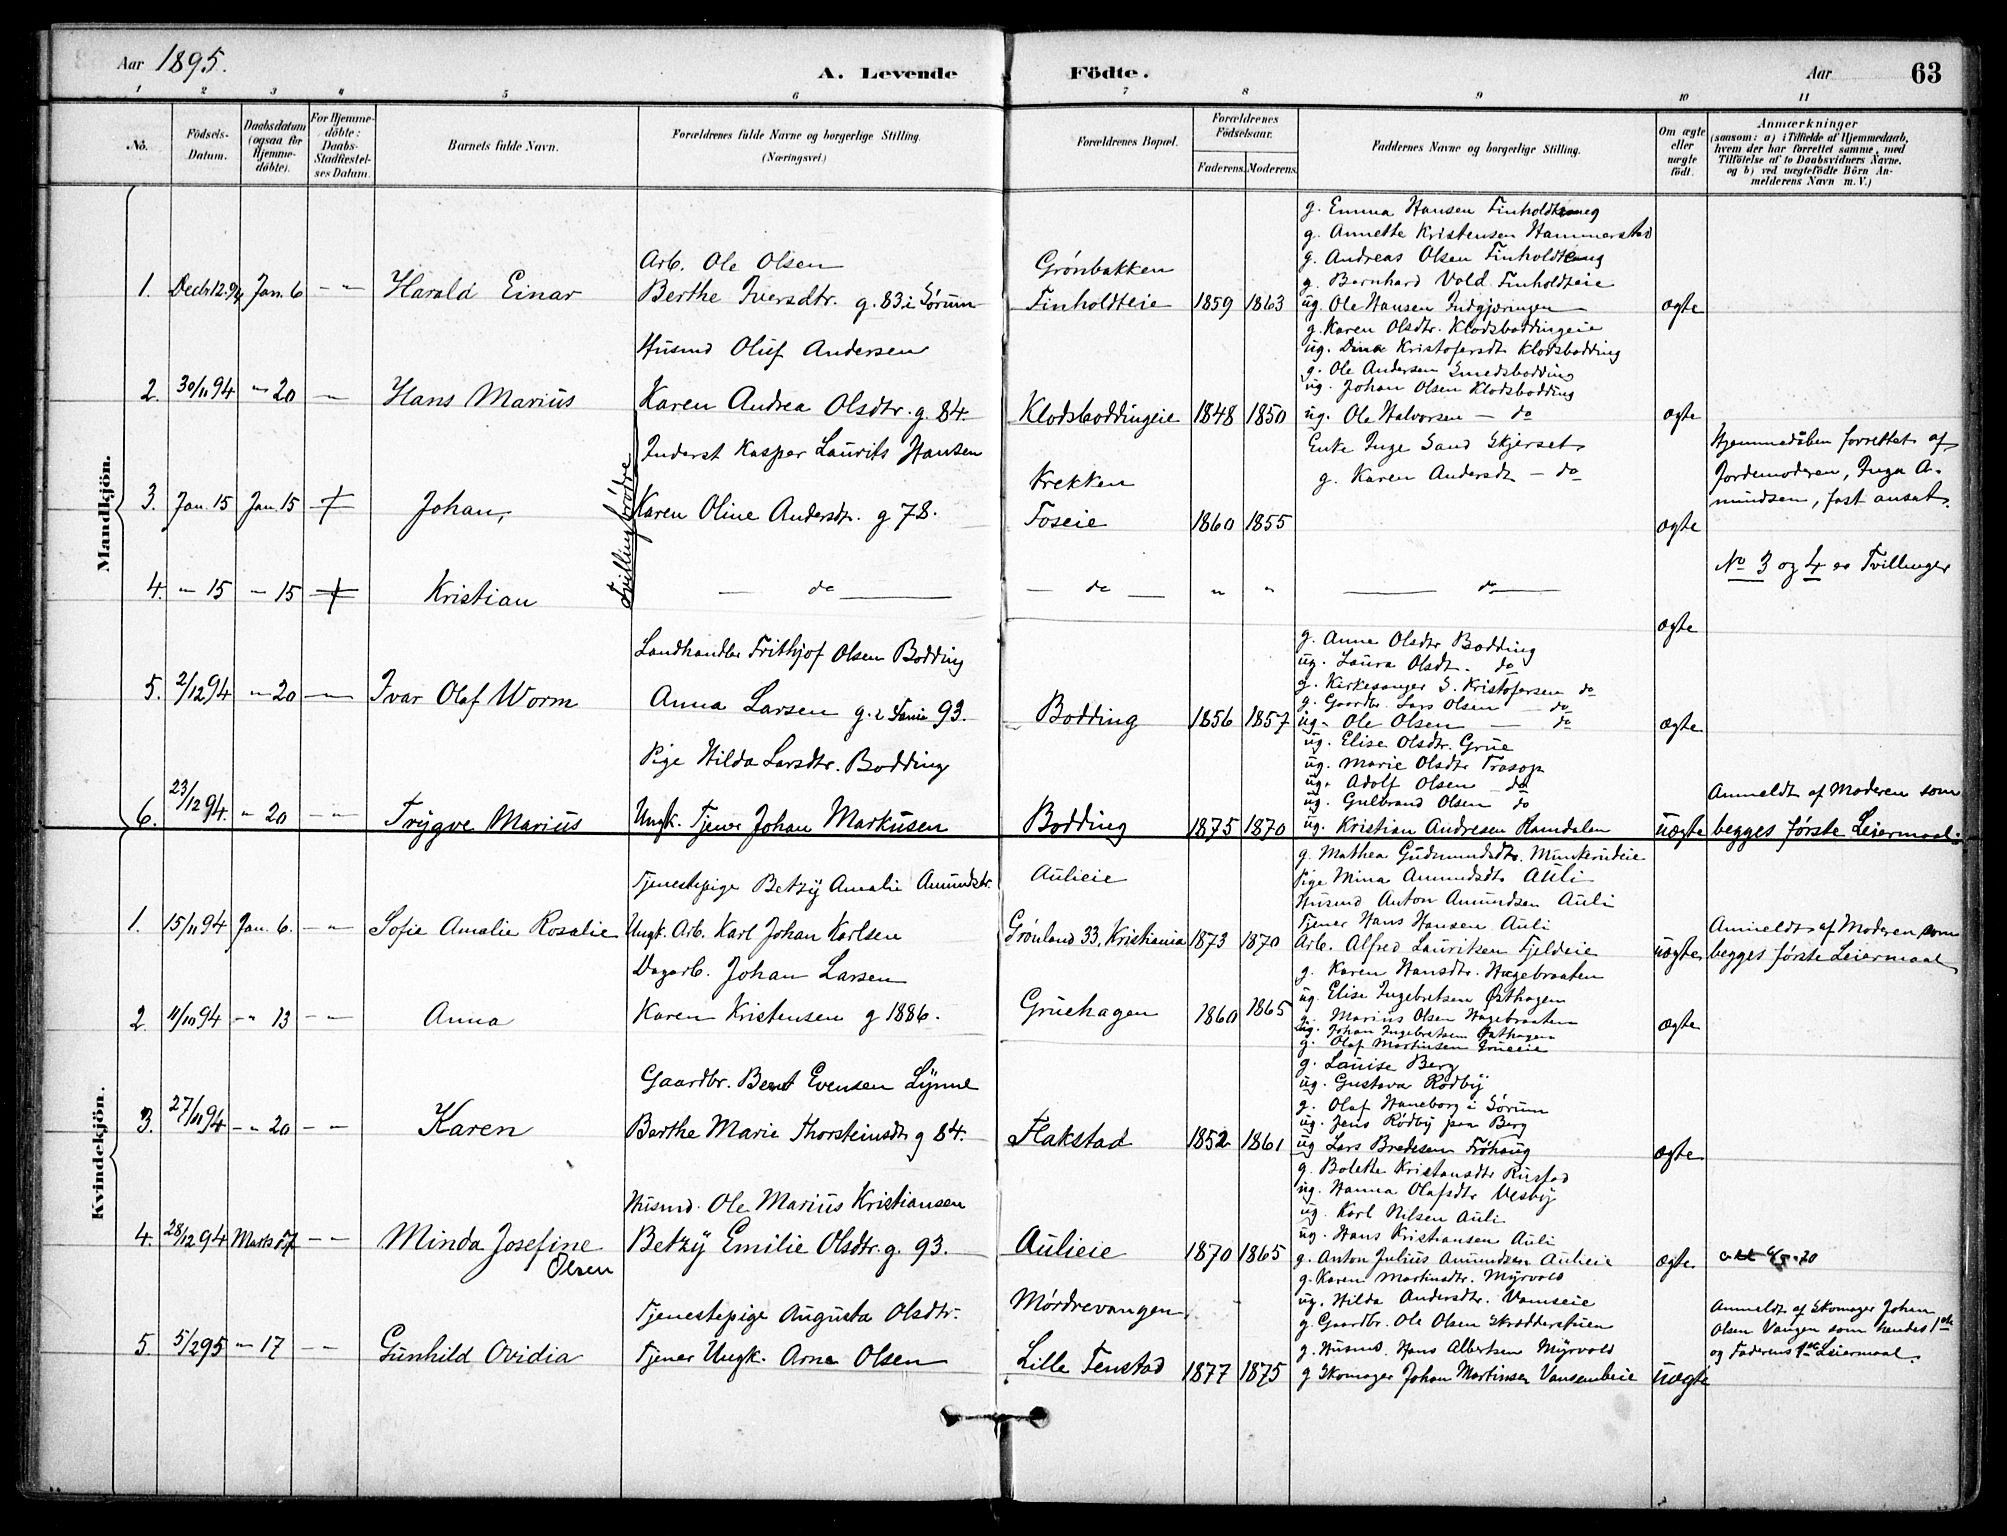 Aar 1895.
A. Levende Födte.
Aar 63
1 2 3 4 5 6 7 8 9 10 11
No.
Födsels-
Datum.
Daabsdatum
(ogsaa for
Hjemme-
döbte).
For Hjemme-
döbte:
Daabs-
Stadfæstel-
ses Datum.
Barnets fulde Navn.
Forældrenes fulde Navne og borgerlige Stilling.
(Næringsvei.)
Forældrenes Bopæl.
Forældrenes
Födselsaar.
Faderens. Moderens.
Faddernes Navne og borgerlige Stilling.
Om ægte
eller
uægte
födt.
Anmærkninger
(saasom: a) i Tilfælde af Hjemmedaab,
hvem der har forrettet samme, med
Tilföielse af to Daabsvidners Navne.
og b) ved uægtefödte Börn An-
melderens Navn m. V.)
Mandkjön.
1. Decbr 12. 94 Jan. 6 - " - Harald Einar
Arb. Ole Olsen
Berthe Iversdtr. g. 83 i Sørum
Grønbakken
Finholdteie 1859 1863
g. Emma Hansen
g. Annette Kristensen Hammerstad
g. Andreas Olsen
g. Bernhard Vold Finholdteie
ug. Ole Hansen Indgjæringen
ægte
2. 30/11 94 - " 20 - " - Hans Marius
Husmd Oluf Andersen
Karen Andrea Olsdtr. g. 84.
Klodsboddingeie 1848 1850
g. Karen Olsdtr. Klodsboddingeie
ug. Dina Kristofersdt Klodsbodding
g. Ole Andersen Smedsbodding
ug. Johan Olsen Klodsbodding
ug. Ole Halvorsen - do
ægte
3. Jan. 15 Jan. 15 Johan,
Tvillingbrødre
Inderst Kasper Laurits Hansen
Karen Oline Andersdtr. g 78.
Krekken
Foseie 1860 1855
Enke Inge Sand Skjerset
g. Karen Andersdt - do
ægte
Hjemmedåben forrettet af
Jordemoderen, Inga A-
mundsen, fast ansat.
No 3 og 4 er Tvillinger
4. - 15 - 15 Kristian
- do - - do - " " - do -
ægte
5. 2/12 94 - " 20 - " - Ivar Olaf Worm
Landhandler Frithjof Olsen Bodding
Anna Larsen g. 93.
Bodding 1856 1857
g. Anne Olsdtr Bodding
ug. Laura Olsdt. do
g. Kirkesanger S. Kristofersen do
g. Gaardbr. Lars Olsen - do
ug. Ole Olsen - do
ægte
6. 23/12 94. - " 20 - " - Trygve Marius
Pige Hilda Larsdtr. Bodding
Ungk. Tjener Johan Markusen
Bodding 1875 1870
ug. Elise Olsdtr. Grue
ug. Marie Olsdtr Frasop
ug. Adolf Olsen - do
ug. Gulbrand Olsen do
ug. Kristian Andresen Ramdalen
uægte
Anmeldt af Moderen som
begges første Leiermaal.
Kvindekjön.
1. 15/11 94 Jan. 6. - " - Sofie Amalie Rosalie
Tjenestepige Betzy Amalie Amundstr.
Ungk. Arb. Karl Johan Karlsen
Aulieie
Grønland 33, Kristiania 1873 1870
g. Mathea Gudmundsdtr. Munkerudeie
Pige Mina Amundsdt Auli
Husmd Anton Amundsen Auli
Tjener Hans Hansen Auli
Arb. Alfred Lauritsen Fjeldeie
uægte
Anmeldt af Moderen som
begges første Leiermaal
2. 11/10 94 - " 13 - " - Anna
Dagarb. Johan Larsen
Karen Kristensen g 1886.
Gruehagen 1860 1865
g. Karen Hansdtr. Hagebraaten
ug. Elise Ingebretsen Østhagen
g. Marius Olsen Hagebraaten
ug. Johan Ingebretsen Østhagen
g. Olaf Martinsen Grueeie
ægte
3. 27/11 94 - " 20 - " - Karen
Gaardbr. Bernt Evensen Lynne
Berthe Marie Thorsteinsdtr g 84.
Flakstad 1852 1861
g. Lauise Berg
ug. Gustava Rødby
g. Olaf Haneborg i Sørum
ug. Jens Rødby paa Berg
ug Lars Bredesen Frøhaug
ægte
4. 28/12 94 Marts 17 - " - Minda Josefine
Olsen
Husmd. Ole Marius Kristiansen
Betzy Emilie Olsdtr. g. 93.
Aulieie 1870 1865
g. Bolette Kristansdtr Rustad
ug. Hanna Olafsdtr Vesby
ug. Karl Nilsen Auli
ug. Hans Kristiansen Auli
g. Anton Julius Amundsen Aulieie
ægte
5. 5/2 95 - " 17 - " - Gunhild Ovidia
Tjenestepige Augusta Olsdtr.
Tjener Ungk. Arne Olsen
Mørdrevangen,
Lille Fenstad 1877 1875
g. Karen Martinsdtr. Myrvold
ug. Hilda Andersdtr. Vamseie
g. Gaardbr. Ole Olsen Skrædderstuen
g. Husmd. Hans Albertsen Myrvold
g Skomager Johan Martinsen
uægte
Anmeldt af Skomager Johan
Olsen Vangen som hendes 1ste
og Faderens 1ste Leiermaal.